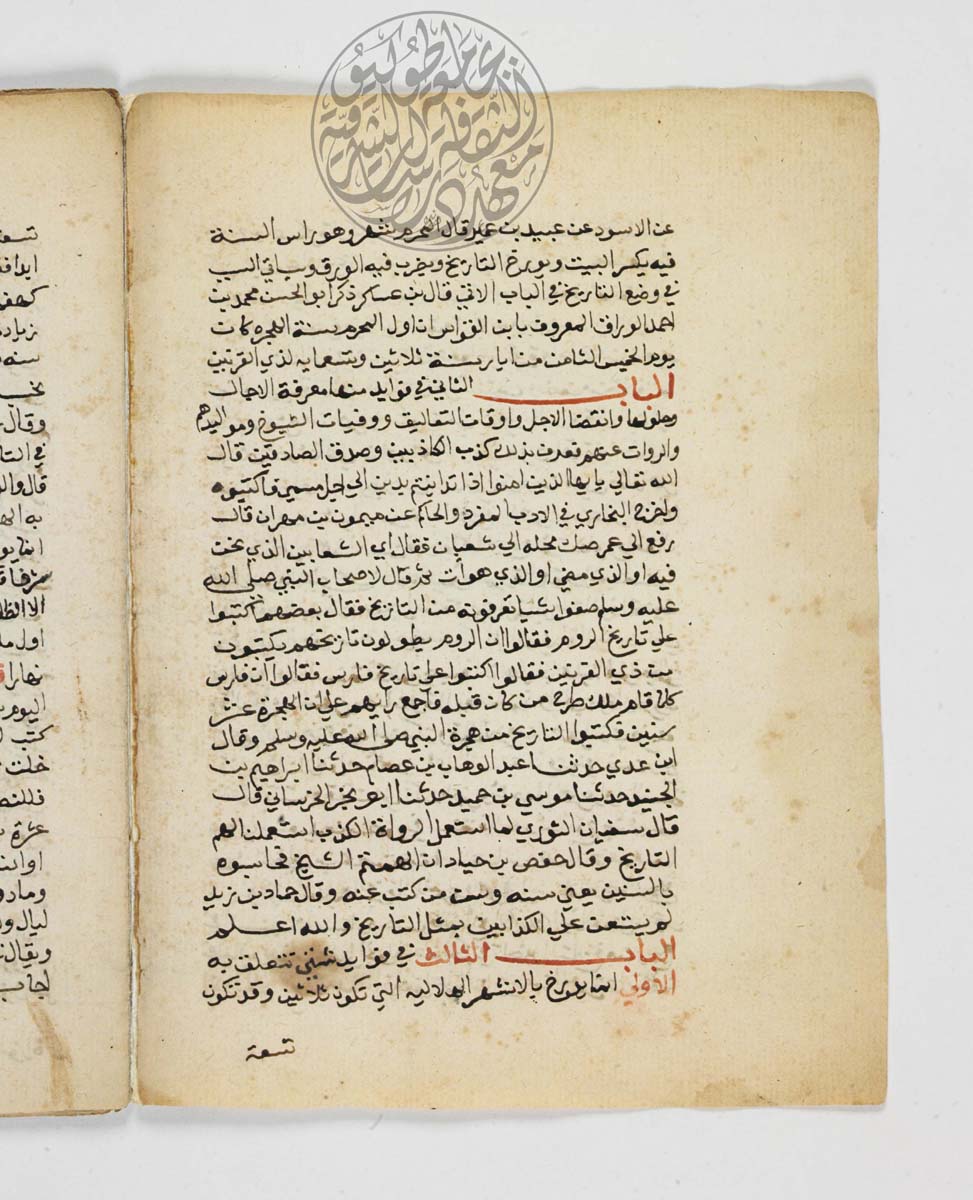 عن الاسود عن عبيد بن عمير قال المحرم شهر وهو راس السنة
فيه يكسر البيت ويورخ التاريخ ويضرب فيه الورق وسياتي السبب
في وضع التاريخ في الباب الاتي قال بن عساكر ذكر ابو الحسن محمد بن
احمد الوراق المعروف بابن القواس ان اول المحرم سنة الهجره كان
يوم الخميس الثامن من ايار سنة ثلاثين وتسعمايه لذي القرنين
الباب الثاني في فوايد منها معرفة الاجال
وحلولها وانقضا الاجل واوقات التعاليق ووفيات الشيوخ ومواليدهم
والروات عنهم فتعرف بذلك كذب الكاذبين وصدق الصادقين قال
الله تعالي يا يها الذين امنوا اذا تداينتم بدين الي اجل مسمي فاكتبوه
واخرج البخاري في الادب المفرد والحاكم عن ميمون بن مهران قال
رفع الي عمر صك محله الي شعبان فقال اي الشعابين الذي نحن
فيه او الذي مضي او الذي هو ات ثم قال لاصحاب النبي صلي الله
عليه وسلم صفوا شيا تعرفونه من التازيخ فقال بعضهم اكتبوا
علي تاريخ الروم فقالوا ان الروم يطولون تازيخهم يكتبون
من ذي القرنين فقالوا اكتبوا علي تاريخ فارس فقالوا ان فارس
كلما قام ملك طرح من كان قبله فاجمع رايهم علي ان الهجرة عشر
سنين فكتبوا التاريخ من هجرة النبي صلى الله عليه وسلم وقال
ابن عدي حدثنا عبد الوهاب بن عصام حدثنا ابراهيم بن
الجنيد حدثنا موسي بن حميد حدثنا ابو بخر الخرساني قال
قال سفيان الثوري لما استعمل الرواة الكذب استعملنا لهم
التاريخ وقال حفص بن حياد ان اتهمتم الشيخ فحاسبوه
بالسنين يعني سنه وسن من كتب عنه وقال حماد بن زيد
لم يستعن علي الكذابين بمثل التاريخ والله اعلم
الباب الثالث في فوايد شتي تتعلق به
الاولي انما يورخ بالاشهر الهلاليه التي تكون ثلاثين وقد تكون
تسعة